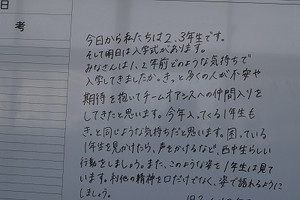 日
考
今日から私たちは2、3年生です。
そして明日は入学式があります。
みなさんは1、2年前どのような気持ちで
入学してきましたか。きっと多くの人が不安や
期待を抱いてチームオアシスへの仲間入りを
してきたと思います。今年入ってくる1年生も
きっと同じような気持ちだと思います。困っている
1年生を見かけたら、声をかけるなど、西中生らしい
行動をしましょう。また、このような姿を1年生は見て
います。利他の精神を口だけでなく、姿で語れるように
しましょう。